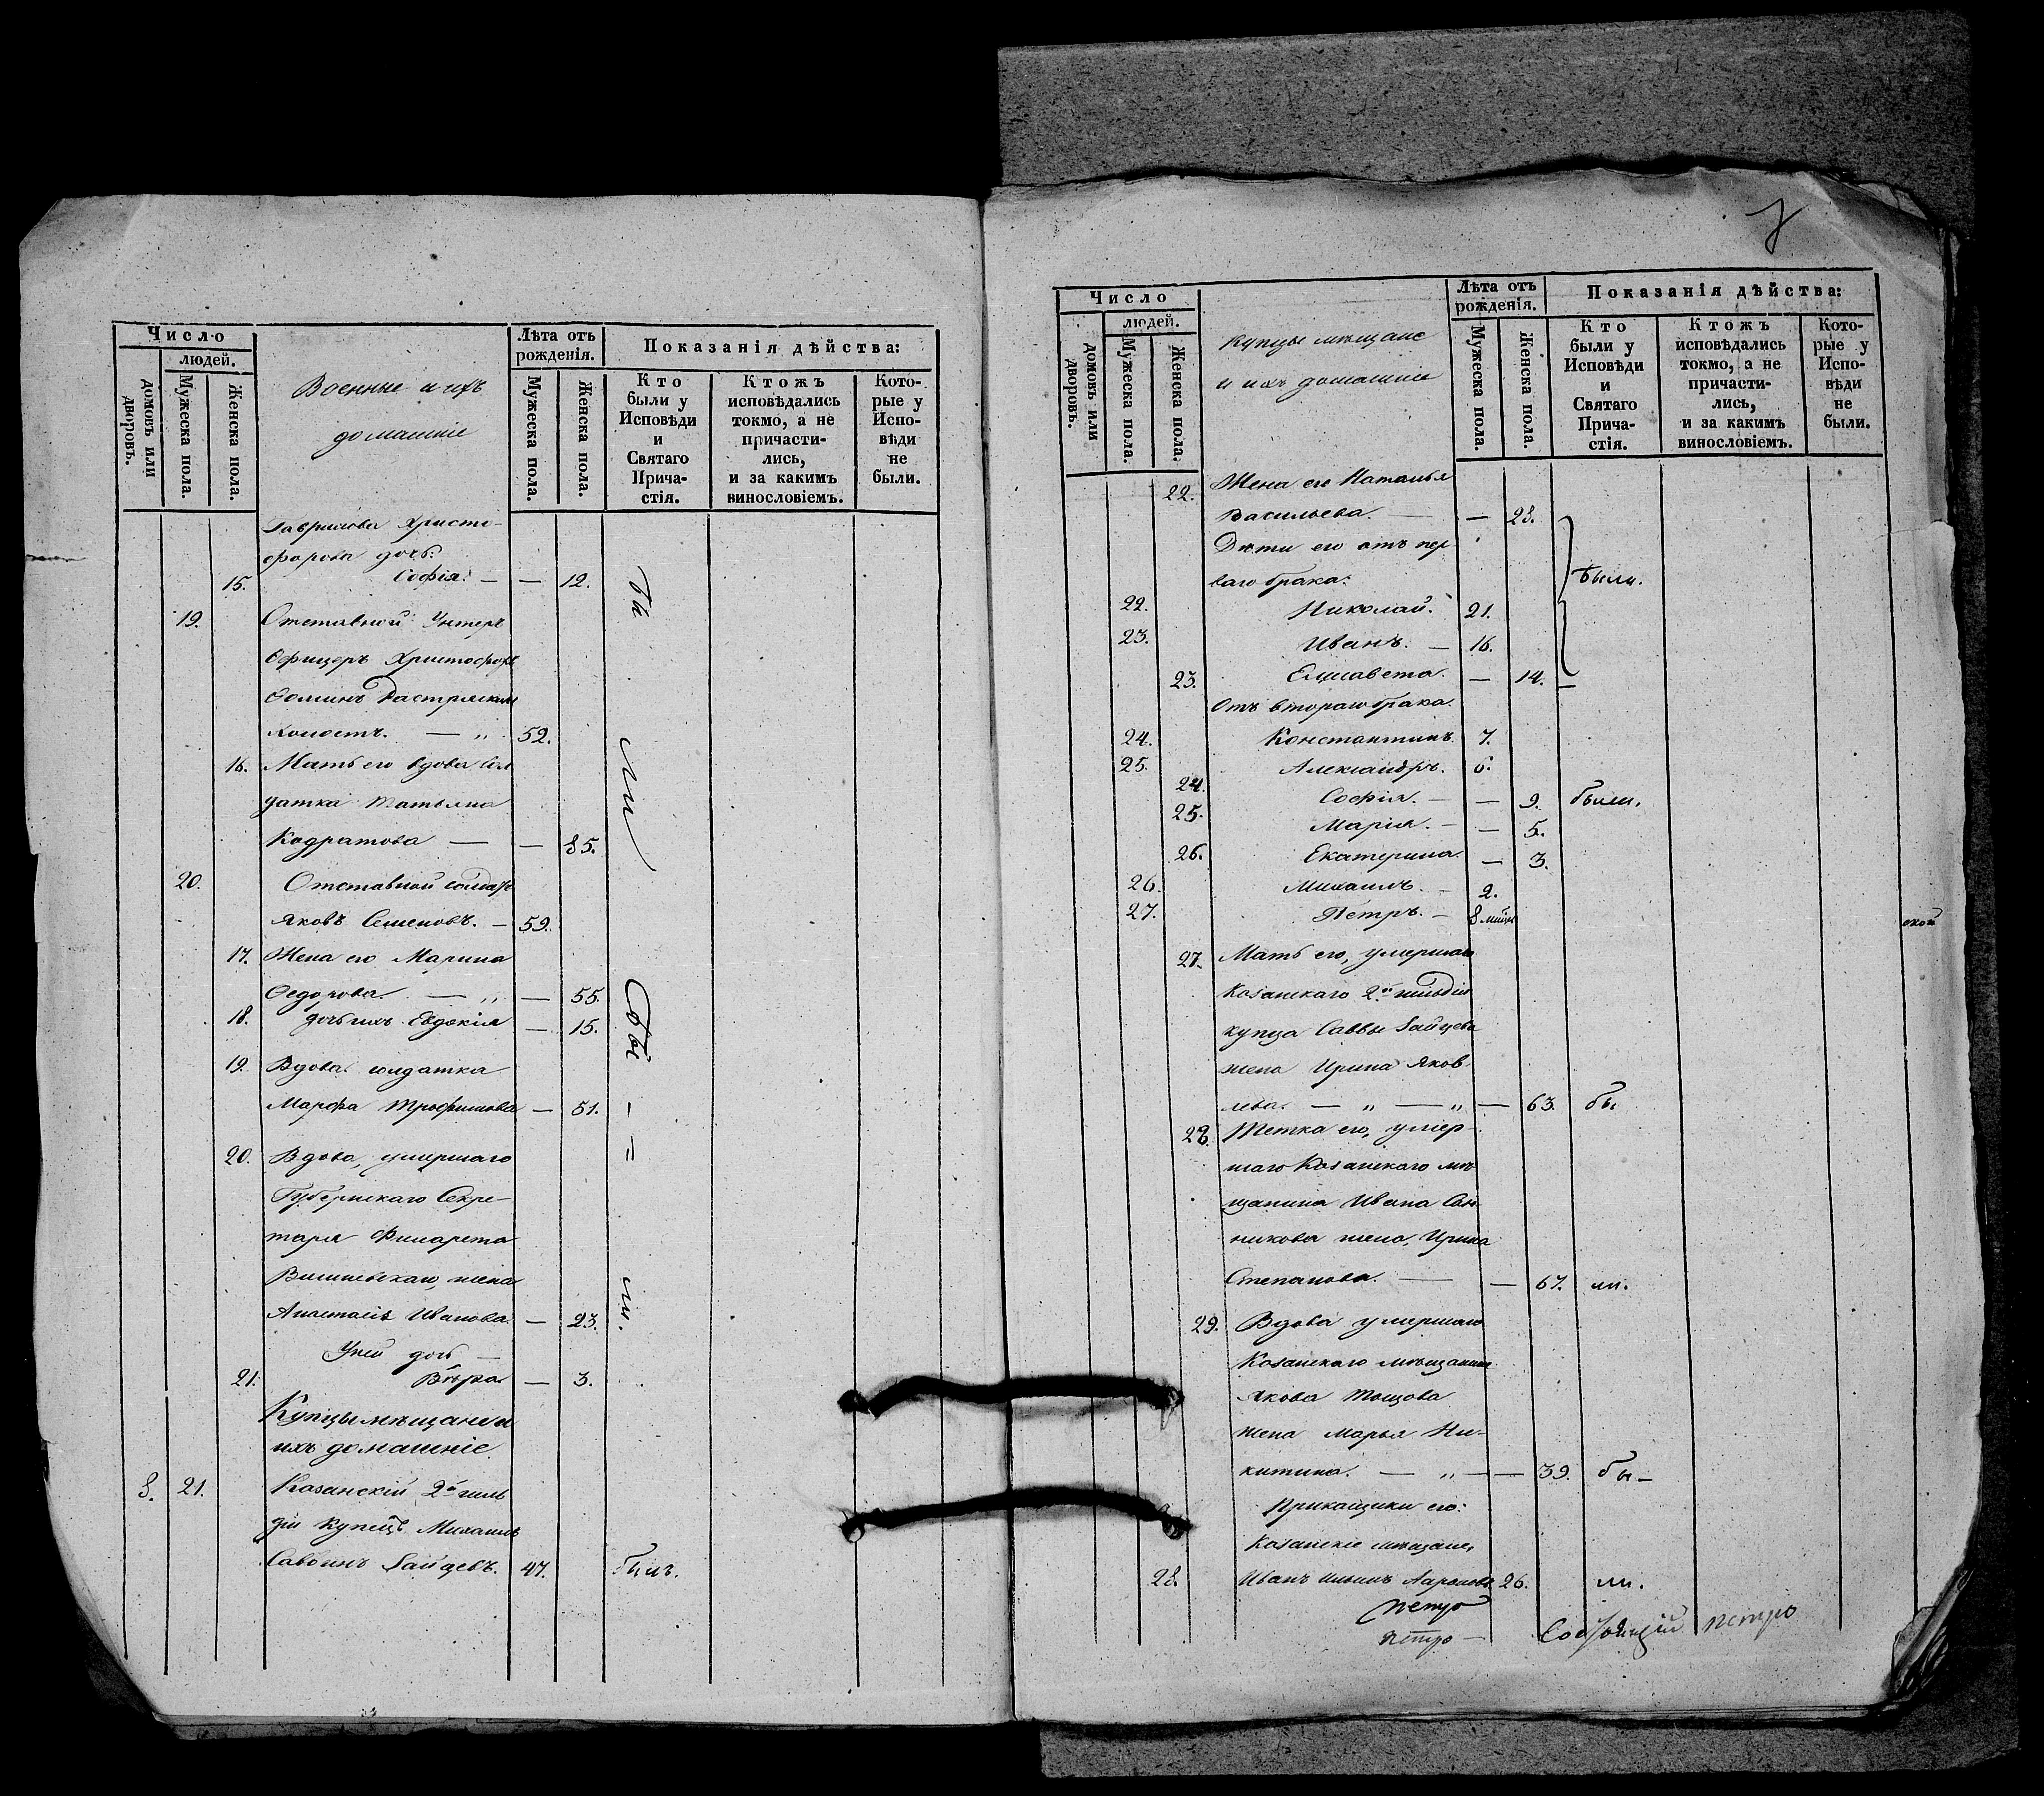 Число
людей.
домовъ или дворовъ.
Мужеска пола.
Женска пола.
Военные и ихъ
домашніе
Лѣта отъ рожденія.
Мужеска пола.
Женска пола.
Показанія дѣйства:
Кто были у Исповѣди и Святаго Прича-стія.
Ктожъ исповѣдались токмо, а не причасти-лись, и за какимъ винословіемъ.
Кото-рые у Испо-вѣди не были.
Гаврилова Христо-
форова дочь:
15. Софія. — — 12.
бы
19. Отставной Унтеръ
Офицеръ Христофоръ
Ѳоминъ
холостъ. — „ 52.
16. Мать его вдова Сол
датка Татьяна
Кодратова — — 85.
ли
20. Отставной солдатъ
Яковъ Семеновъ. — 59.
17. Жена его Марина
Ѳедорова. — „ — 55.
18. дочь ихъ Евдокія — 15.
бы
19. Вдова солдатка
Марѳа Трофимова — 51.
20. Вдова, умершаго
Губернскаго Секре-
таря Филарета
Вишневскаго, жена
Анастасія Иванова. — 23.
ли.
У ней дочь —
21. Вѣра — 3.
Купцы мѣщане и
ихъ домашніе.
8. 21. Казанскій 2й гиль
діи Купецъ Михаилъ
Саввинъ Зайцевъ. 47. былъ.
7
Число
людей.
домовъ или дворовъ.
Мужеска пола.
Женска пола.
Купцы мѣщане
и ихъ домашніе
Лѣта отъ рожденія.
Мужеска пола.
Женска пола.
Показанія дѣйства:
Кто были у Исповѣди и Святаго Прича-стія.
Ктожъ исповѣдались токмо, а не причасти-лись, и за какимъ винословіемъ.
Кото-рые у Испо-вѣди не были.
22. Жена его Наталья
Васильева. — — 28.
Дѣти его отъ пер
ваго брака: были.
22. Николай. 21.
23. Иванъ. — 16.
23. Елисавета. — 14. —
Отъ втораго брака.
24. Константинъ. 7.
25. Александръ. 6.
24. Софія. — — 9. были.
25. Марія. — — 5.
26. Екатерина. — 3.
26. Михаилъ. — 2.
27. Петръ. — 8 мѣсц
27. Мать его, умершаго
Казанскаго 2й гильдіи
купца Саввы Зайцева
жена Ирина Яков
лева. — „ — „ — 63. бы
28. Тетка его, умер-
шаго Казанскаго мѣ
щанина Ивана Сан
никова жена, Ирина
Степанова. — — 67. ли.
29. Вдова умершаго
Казанскаго мѣщанина
Якова
жена Марья Ни-
китина. — „ — — 39. бы —
Прикащики его:
Казанскіе мѣщане,
28. Иванъ Ильинъ Ааронов 26. ли.
Петро
Петро —
Петро
ской